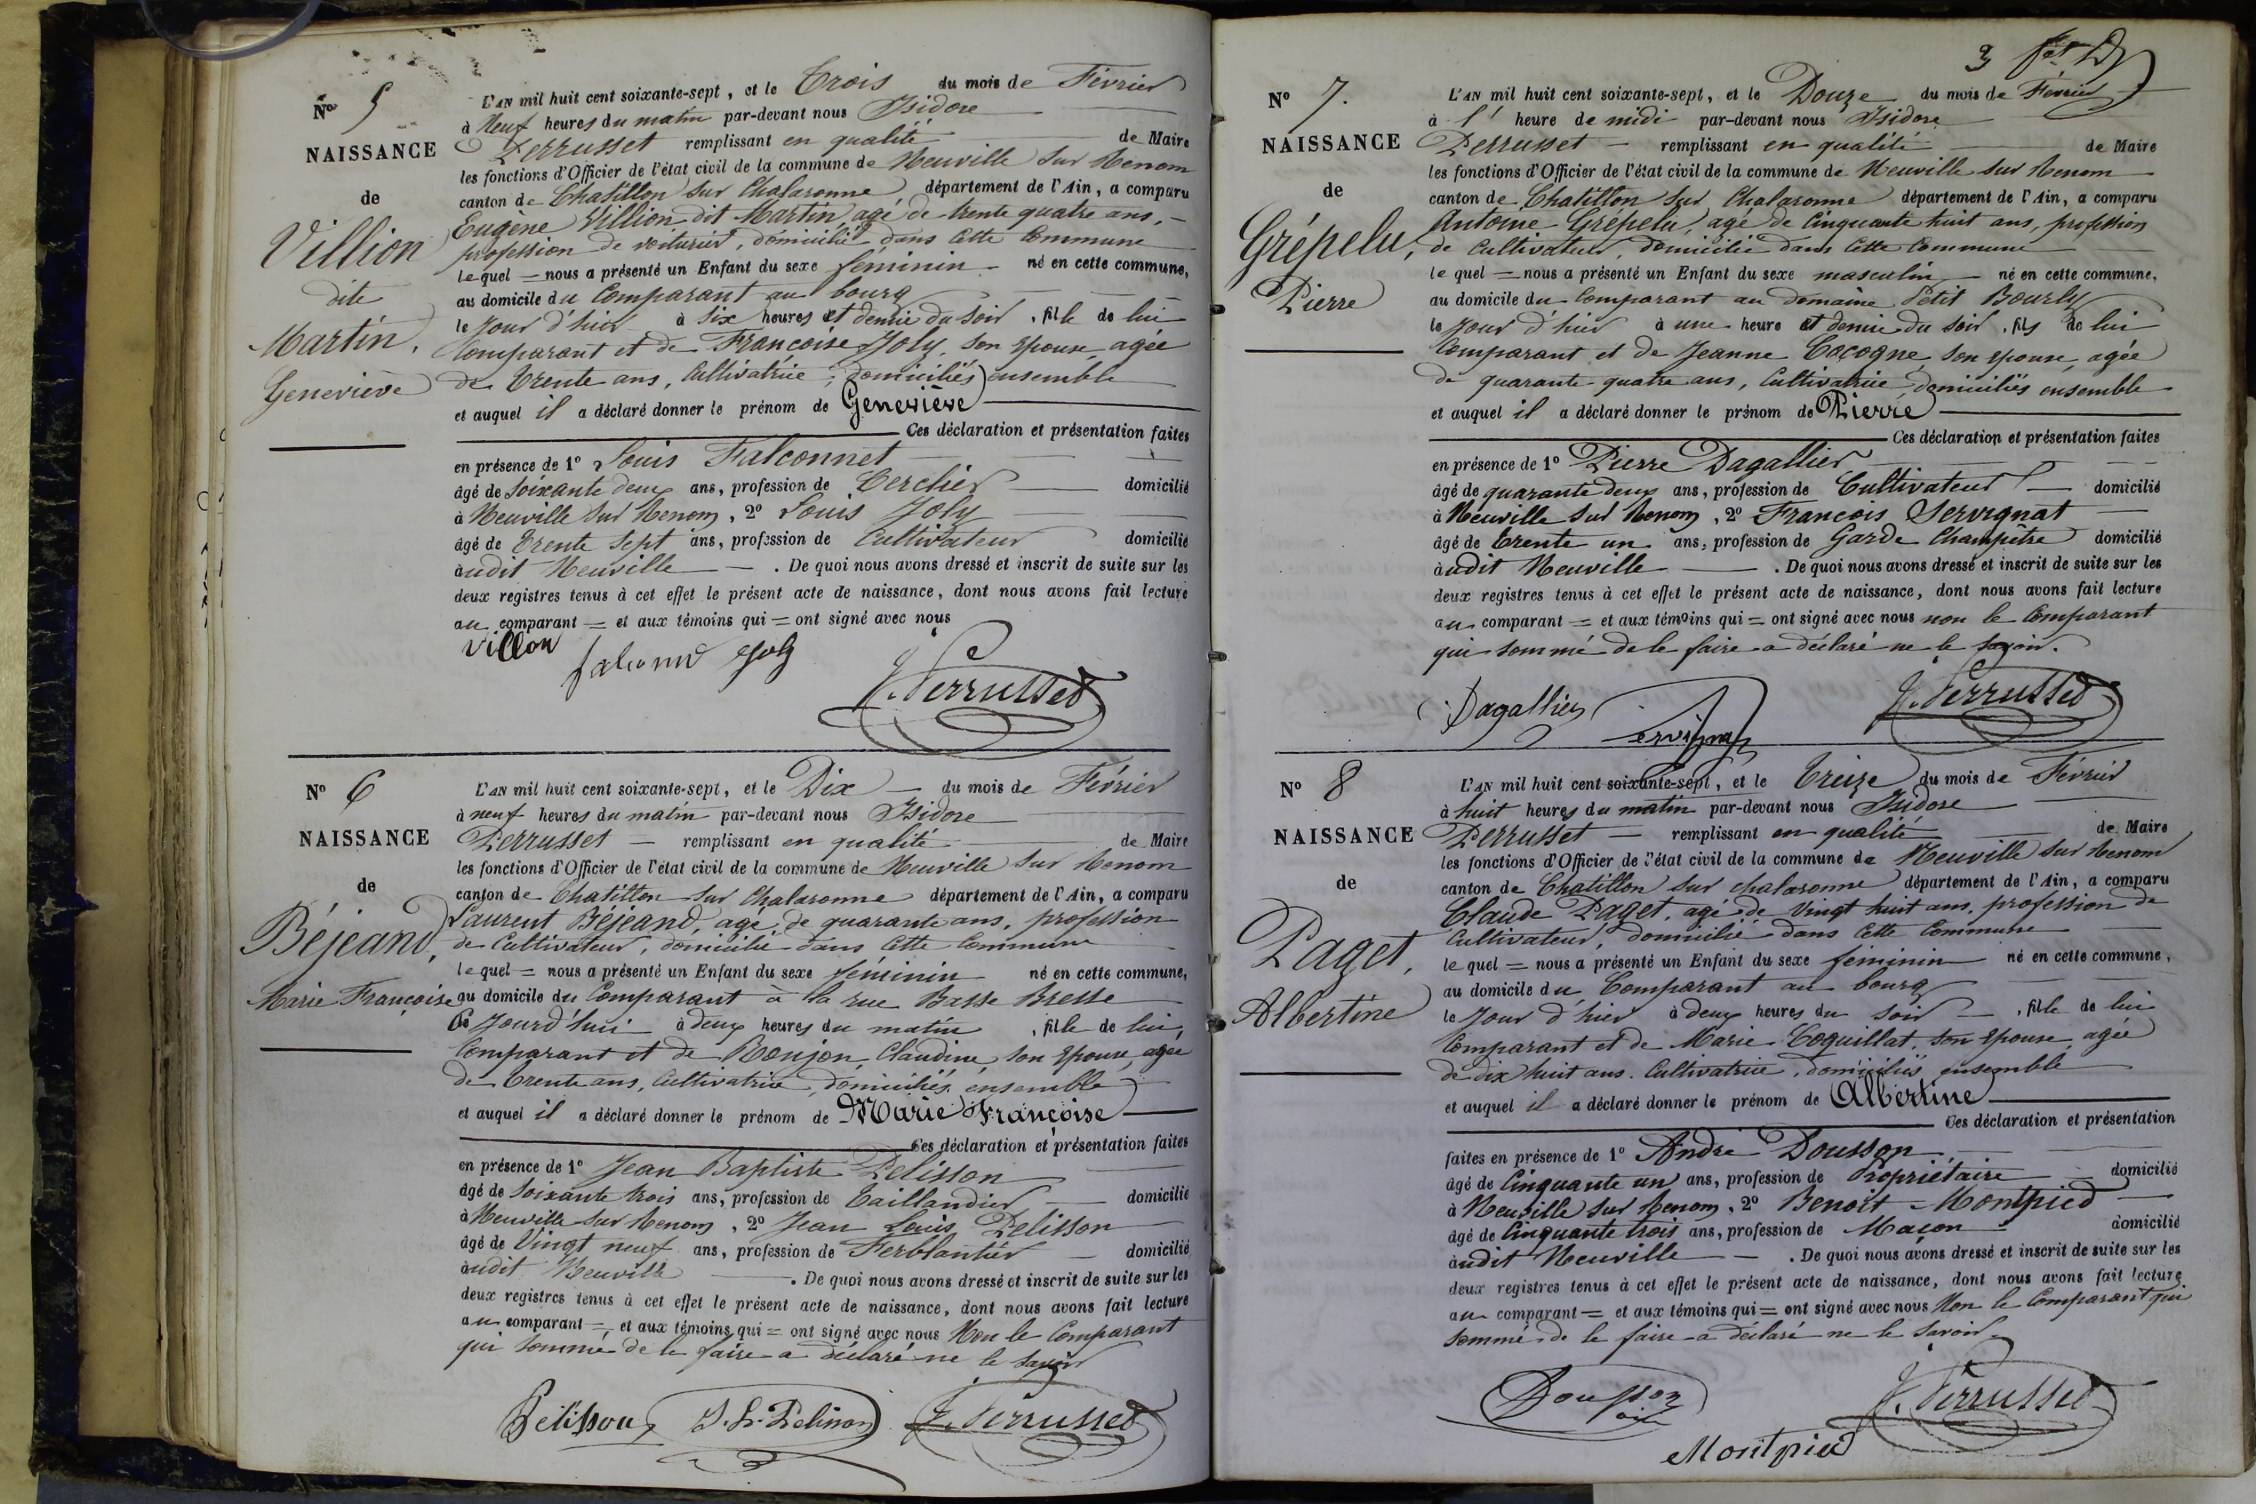 No 5
NAISSANCE
de
Villion
dite
Martin,
Geneviève
L'AN mil huit cent soixante-sept, et le Trois du mois de Février
à Neuf heures du matin par-devant nous Isidore
Perrusset remplissant en qualité de Maire
les fonctions d'Officier de l'état civil de la commune de Neuville sur Renom
canton de Chatillon sur Chalaronne département de l'Ain, a comparu
Eugène Villion dit Martin, agé de trente quatre ans,
profession de voiturier, domicilié dans cette Commune
le quel = nous a présenté un Enfant du sexe féminin né en cette commune,
au domicile du Comparant au bourg
le jour d'hier à six heures et demie du soir, fille de lui
Comparant et de Françoise Joly, son Epouse, agée
de trente ans, Cultivatrice, domiciliés ensemble
et auquel il a déclaré donner le prénom de Geneviève
Ces déclaration et présentation faites
en présence de 1o Louis Falconnet
âgé de soixante deux ans, profession de Cerclier domicilié
à Neuville sur Renom, 2o Louis Joly
âgé de trente sept ans, profession de Cultivateur domicilié
audit Neuville. De quoi nous avons dressé et inscrit de suite sur les
deux registres tenus à cet effet le présent acte de naissance, dont nous avons fait lecture
au comparant = et aux témoins qui = ont signé avec nous
Villon
Joly
J. Perrusset
No 6
NAISSANCE
de
Béjeand,
Marie Françoise
L'AN mil huit cent soixante-sept, et le Dix du mois de Février
à neuf heures du matin par-devant nous Isidore
Perrusset remplissant en qualité de Maire
les fonctions d'Officier de l'état civil de la commune de Neuville sur Renom
canton de Chatillon sur Chalaronne département de l'Ain, a comparu
Laurent Béjeand, agé de quarante ans, profession
de Cultivateur, domicilié dans cette Commune
le quel = nous a présenté un Enfant du sexe féminin né en cette commune,
au domicile du Comparant à la rue Basse Bresse
Ce jourd'hui à deux heures du matin, fille de lui,
Comparant et de Roujon Claudine, son Epouse, agée
de trente ans, Cultivatrice, domiciliés ensemble
et auquel il a déclaré donner le prénom de Marie Françoise
Ces déclaration et présentation faites
en présence de 1o Jean Baptiste Pelisson
âgé de soixante trois ans, profession de Taillandier domicilié
à Neuville sur Renom, 2o Jean Louis Pelisson
âgé de Vingt neuf ans, profession de Ferblantier domicilié
audit Neuville. De quoi nous avons dressé et inscrit de suite sur les
deux registres tenus à cet effet le présent acte de naissance, dont nous avons fait lecture
au comparant = et aux témoins qui = ont signé avec nous Non le Comparant
qui sommé de le faire a déclaré ne le savoir
Pélisson J. L. Pelisson J. Perrusset
3
No 7.
NAISSANCE
de
Grépelu,
Pierre
L'AN mil huit cent soixante-sept, et le Douze du mois de Février
à l' heure de midi par-devant nous Isidore
Perrusset remplissant en qualité de Maire
les fonctions d'Officier de l'état civil de la commune de Neuville sur Renom
canton de Chatillon sur Chalaronne département de l'Ain, a comparu
Antoine Grépelu, agé de Cinquante huit ans, profession
de Cultivateur, domicilié dans cette Commune
le quel = nous a présenté un Enfant du sexe masculin né en cette commune,
au domicile du Comparant au domaine Petit Bourly
le jour d'hier à une heure et demie du soir, fils de lui
Comparant et de Jeanne Cocogne, son Epouse, agée
de quarante quatre ans, Cultivatrice, domiciliés ensemble
et auquel il a déclaré donner le prénom de Pierre
Ces déclaration et présentation faites
en présence de 1o Pierre Dagallier
âgé de quarante deux ans, profession de Cultivateur domicilié
à Neuville sur Renom, 2o François Servignat
âgé de trente un ans, profession de Garde Champêtre domicilié
audit Neuville. De quoi nous avons dressé et inscrit de suite sur les
deux registres tenus à cet effet le présent acte de naissance, dont nous avons fait lecture
au comparant = et aux témoins qui = ont signé avec nous non le Comparant
qui sommé de le faire a déclaré ne le savoir.
Dagallier Servignat J. Perrusset
No 8
NAISSANCE
de
Paget,
Albertine
L'AN mil huit cent soixante-sept, et le Treize du mois de Février
à huit heures du matin par-devant nous Isidore
Perrusset remplissant en qualité de Maire
les fonctions d'Officier de l'état civil de la commune de Neuville sur Renom
canton de Chatillon sur Chalaronne département de l'Ain, a comparu
Claude Paget, agé de Vingt huit ans, profession de
Cultivateur, domicilié dans cette Commune
le quel = nous a présenté un Enfant du sexe féminin né en cette commune,
au domicile du Comparant au bourg
le jour d'hier à deux heures du soir, fille de lui
Comparant et de Marie Coquillat, son Epouse, agée
de dix huit ans, Cultivatrice, domiciliés ensemble
et auquel il a déclaré donner le prénom de Albertine
Ces déclaration et présentation
faites en présence de 1o André Dousson
âgé de Cinquante un ans, profession de Propriétaire domicilié
à Neuville sur Renom, 2o Benoit Montpied
âgé de Cinquante trois ans, profession de Maçon domicilié
audit Neuville. De quoi nous avons dressé et inscrit de suite sur les
deux registres tenus à cet effet le présent acte de naissance, dont nous avons fait lecture
au comparant = et aux témoins qui = ont signé avec nous Non le Comparant qui
sommé de le faire a déclaré ne le savoir.
Dousson J. Perrusset
Montpied